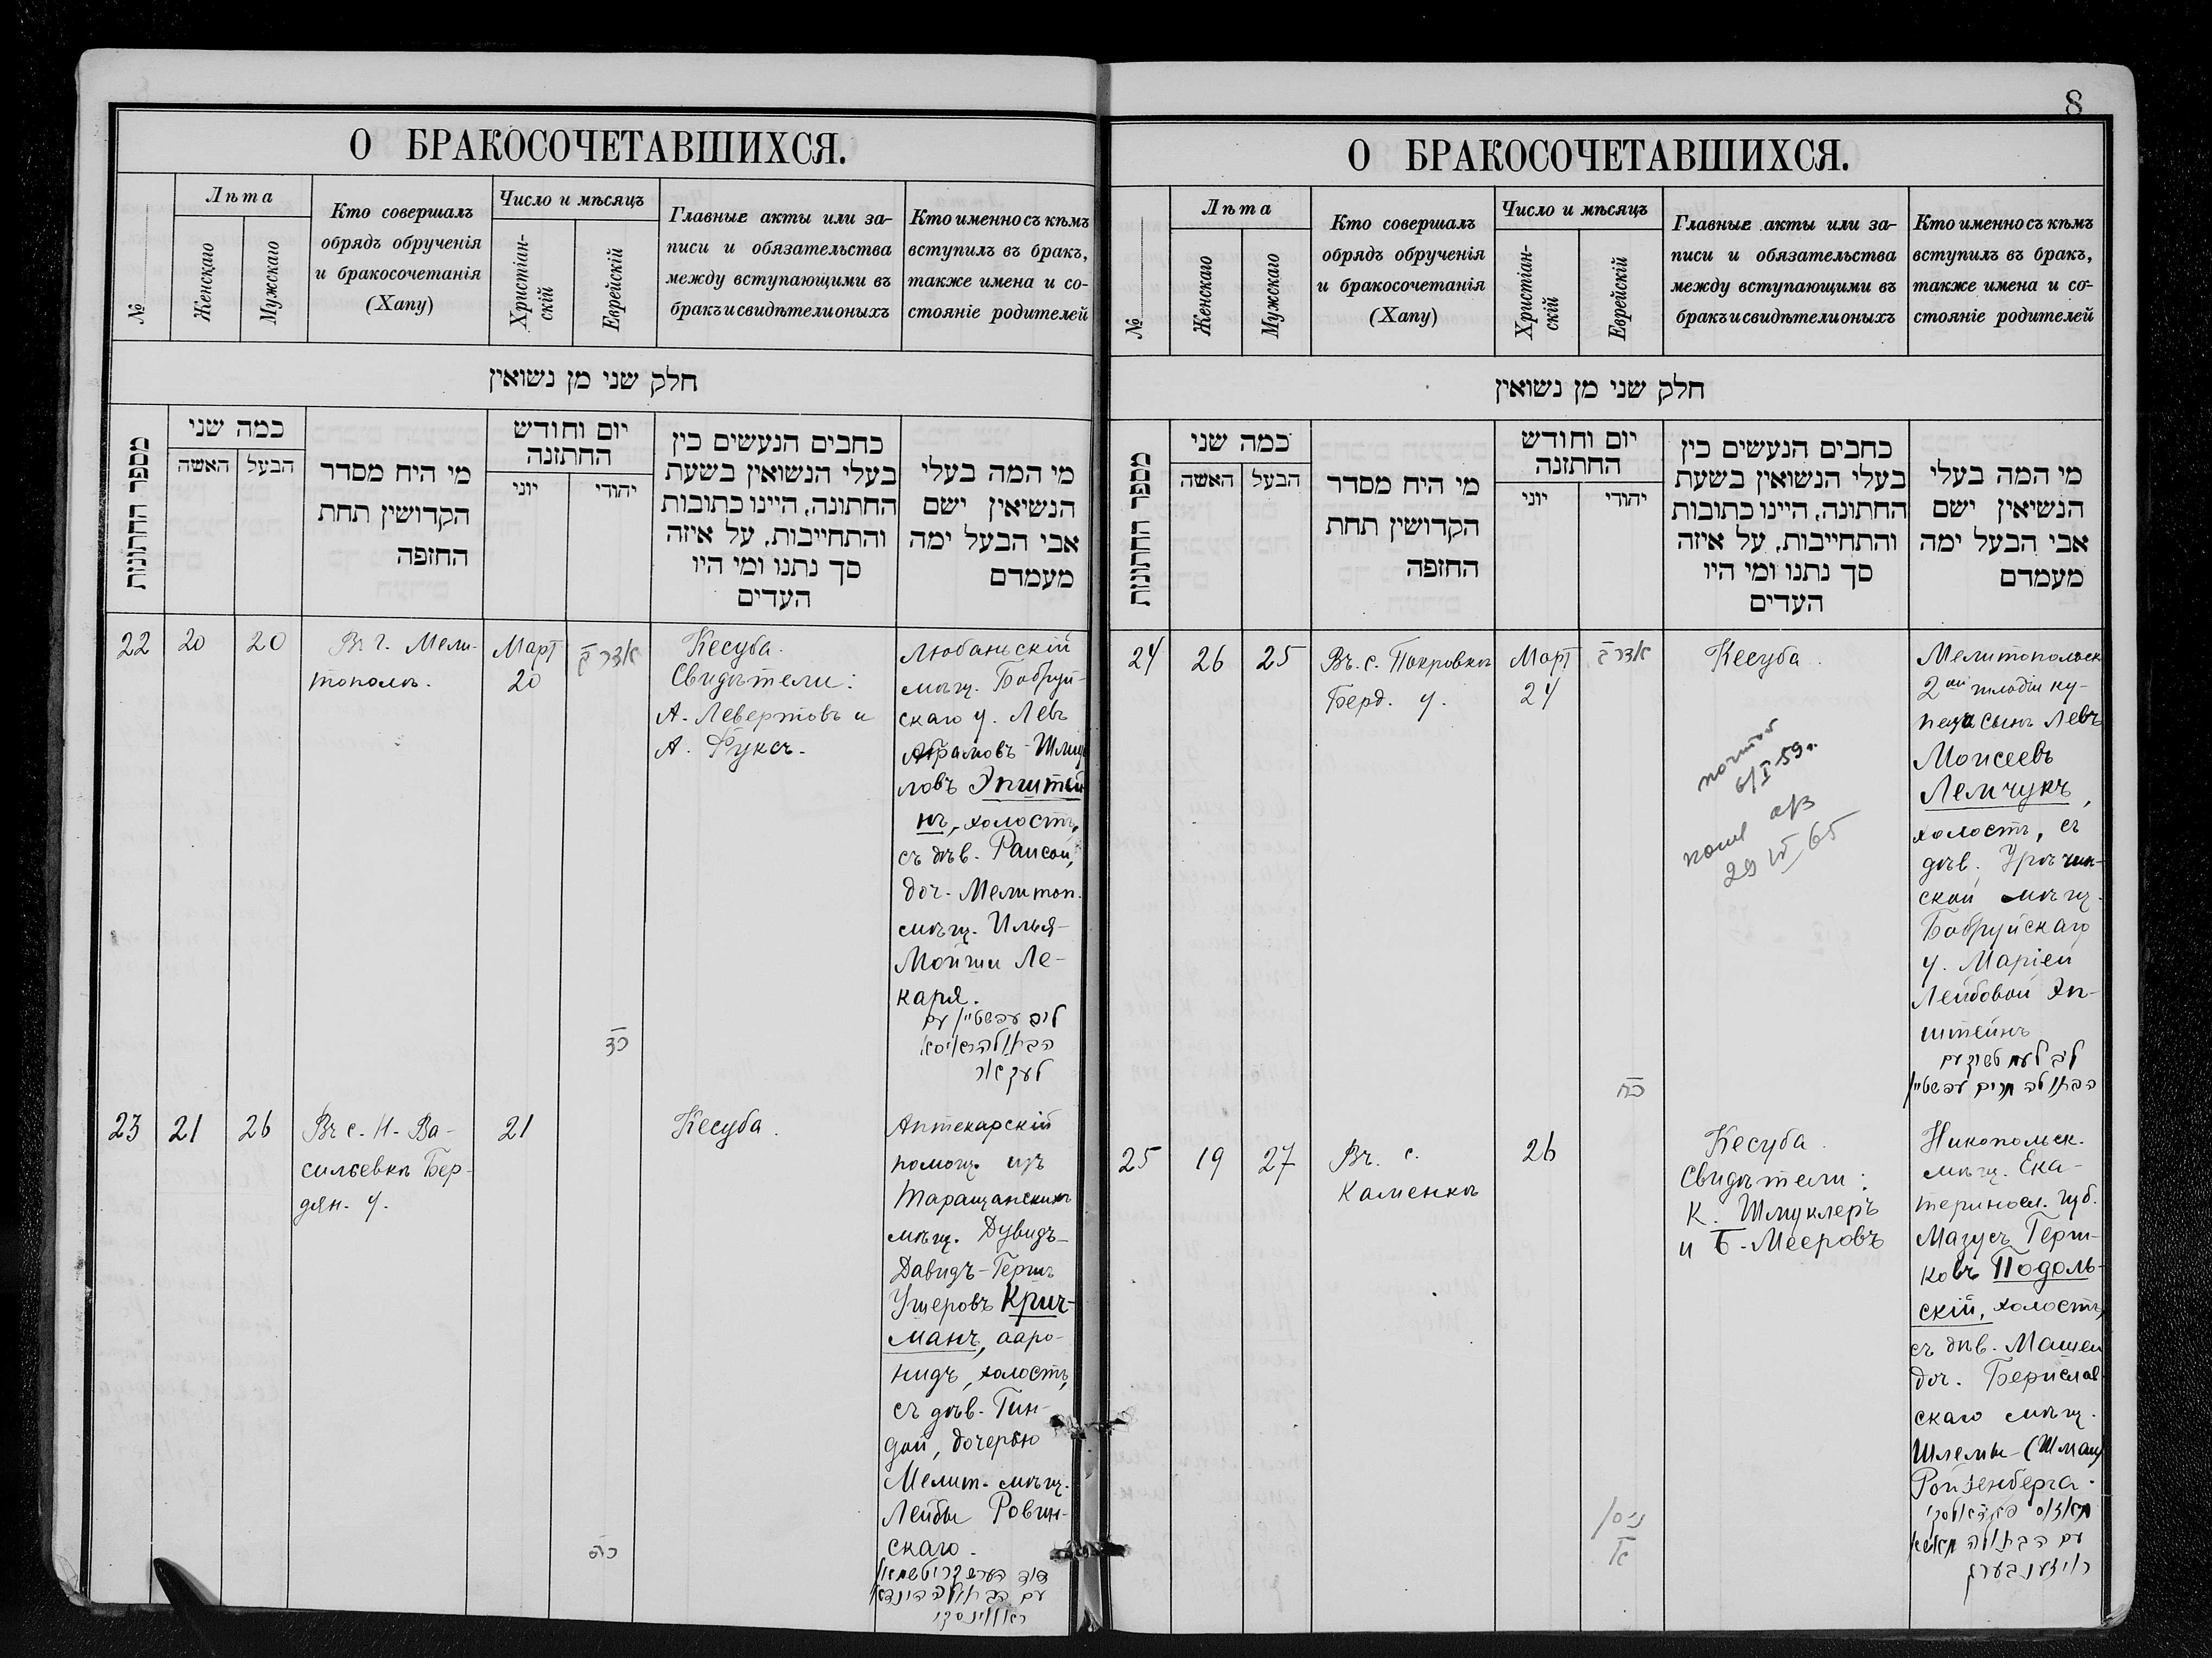 О БРАКОСОЧЕТАВШИХСЯ.
№
Лѣта
Женскаго
Мужскаго
Кто совершалъ
обрядъ обрученія
и бракосочетанія
(Хапу)
Число и мѣсяцъ
Христіан-
скій
Еврейскій
Главные акты или за-
писи и обязательства
между вступающими въ
бракъ и свидѣтели оныхъ
Кто именно съ кѣмъ
вступилъ въ бракъ,
также имена и со-
стояніе родителей
חלק שני מן נשואין
מספר החתונות
כמה שני
האשה
הבעל
מי היח מסדר
הקדושין תחת
החופה
יום וחודש
החתונה
יוני
יהודי
כחבים הנעשים כין
בעלי הנשואין בשעת
החתונה, היינו כתובות
והתחייבות, על איזה
סך נתנו ומי היו
העדים
מי המה בעלי
הנשיאין ישם
אבי הבעל ימה
מעמדם
22
20
20
Въ г. Мели-
тополѣ.
Март
20
אדר ב
כד
Кесуба.
Свидѣтели:
А. Левертовъ и
А. Фуксъ.
Любаньскій
мѣщ. Бобруй-
скаго у. Левъ
Абрамовъ-Шму
ловъ Эпштей
нъ, холостъ,
съ дѣв. Раисой,
доч. Мелитоп.
мѣщ. Илья-
Мойши Ле-
каря.
ליב עפשטיין עם
הבתולה ראיסא
לעקאר
23
21
26
Въ с. Н-Ва-
сильевкѣ Бер-
дян. у.
21
כה
Кесуба.
Аптекарскій
помощ. изъ
Таращанскихъ
мѣщ. Дувидъ-
Давидъ-Гершъ
Ушеровъ Крич-
манъ, ааро-
нидъ, холостъ,
съ дѣв. Гин-
дой, дочерью
Мелит. мѣщ.
Лейбы Ровин-
скаго.
דוד הערש קריטשמאן
עם הבתולה הינדא
ראווינסקי
8
О БРАКОСОЧЕТАВШИХСЯ.
№
Лѣта
Женскаго
Мужскаго
Кто совершалъ
обрядъ обрученія
и бракосочетанія
(Хапу)
Число и мѣсяцъ
Христіан-
скій
Еврейскій
Главные акты или за-
писи и обязательства
между вступающими въ
бракъ и свидѣтели оныхъ
Кто именно съ кѣмъ
вступилъ въ бракъ,
также имена и со-
стояніе родителей
חלק שני מן נשואין
מספר החתונות
כמה שני
האשה
הבעל
מי היח מסדר
הקדושין תחת
החופה
יום וחודש
החתונה
יוני
יהודי
כחבים הנעשים כין
בעלי הנשואין בשעת
החתונה, היינו כתובות
והתחייבות, על איזה
סך נתנו ומי היו
העדים
מי המה בעלי
הנשיאין ישם
אבי הבעל ימה
מעמדם
24
26
25
Въ с. Покровкѣ
Берд. у.
Март
24
אדר ב
כח
Кесуба.
6/I-59г.
29 VI 65
Мелитопольск
2ой гильдіи ку-
пеца сынъ Левъ
Моисеевъ
Лемчукъ,
холостъ, съ
дѣв.
ской мѣщ.
Бобруйскаго
у. Маріей
Лейбовой Эп-
штейнъ
עם
הבתולה מרים עפשטיין
25
19
27
Въ с.
Каменкѣ
26
ניסן
א
Кесуба.
Свидѣтели:
К. Шмуклеръ
и Б. Мееровъ
Никопольск.
мѣщ. Ека-
териносл. губ.
Мазусъ Герш-
ковъ Подоль-
скій, холостъ,
съ дѣв. Машей
доч. Берислав
скаго мѣщ.
Шлемы-
Ройзенберга.
מאזוס פאדאלסקי
עם הבתולה מאשא
רויזענבערג